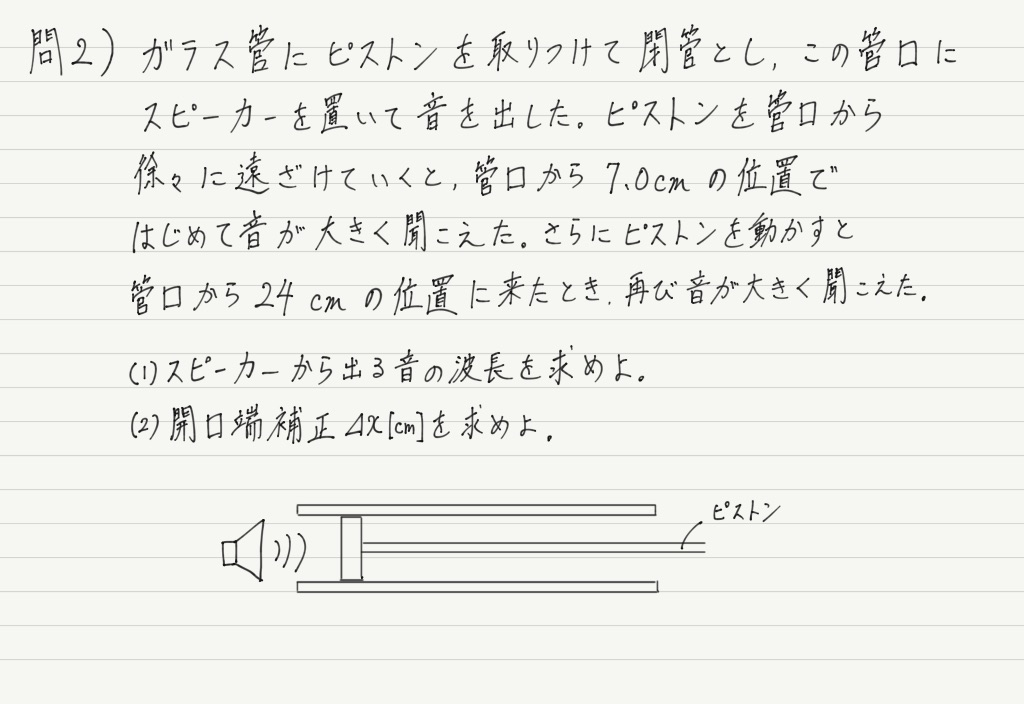 問2) ガラス管にピストンを取りつけて閉管とし, この管口に
スピーカーを置いて音を出した。ピストンを管口から
徐々に遠ざけていくと, 管口から 7.0cm の位置で
はじめて音が大きく聞こえた。さらにピストンを動かすと
管口から 24 cm の位置に来たとき, 再び音が大きく聞こえた。
(1) スピーカーから出る音の波長を求めよ。
(2) 開口端補正 Δx[cm]を求めよ。
ピストン